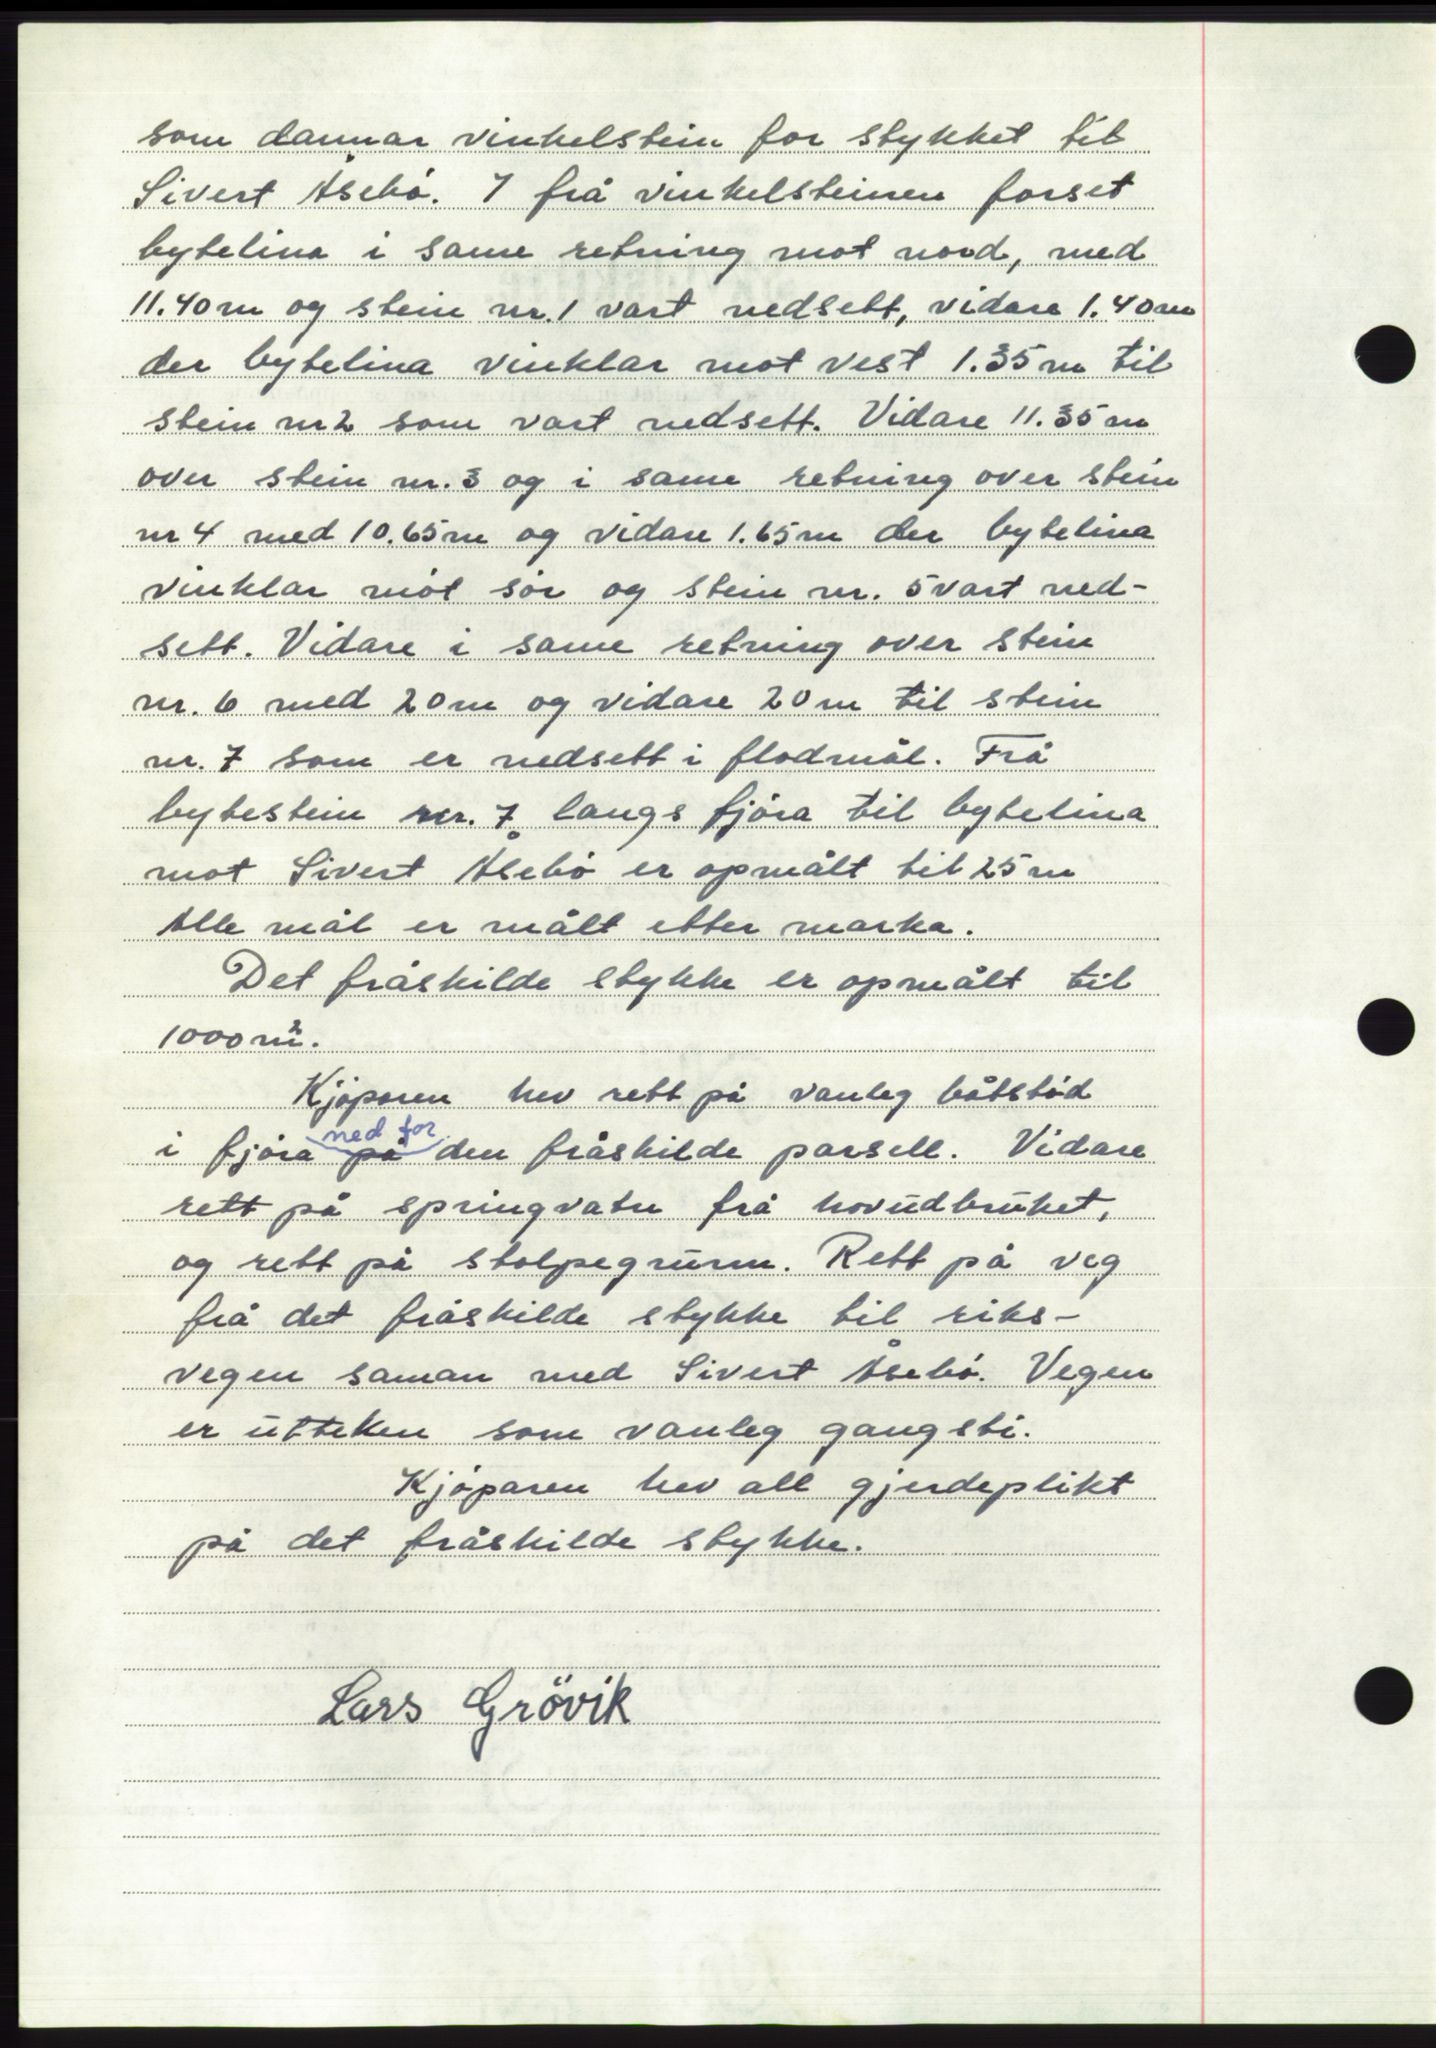 som dannar vinkelstein for stykket til
Sivert Åsebö. I frå vinkelsteinen forset
bytelina i same retning mot nord, med
11.40 m og stein nr. 1 vart nedsett, vidare 1.40 m
der bytelina vinklar mot vest 1.35 m til
stein nr 2 som vart nedsett. Vidare 11.35 m
over stein nr. 3 og i same retning over stein
nr 4 med 10.65 m og vidare 1.65 m der bytelina
vinklar mot sör og stein nr. 5 vart ned-
sett. Vidare i same retning over stein
nr. 6 med 20 m og vidare 20 m til stein
nr. 7 som er nedsett i flodmål. Frå
bytestein nr. 7 langs fjöra til bytelina
mot Sivert Åsebö er opmålt til 25 m
Alle mål er målt etter marka.
Det fråskilde stykke er opmålt til
1000 m².
Kjöparen hev rett på vanleg båtstöd
ned for
i fjöra på den fråskilde parsell. Vidare
rett på springvatn frå hovudbruket,
og rett på stolpegrunn. Rett på veg
frå det fråskilde stykke til riks-
vegen saman med Sivert Åsebö. Vegen
er utteken som vanleg gangsti.
Kjöparen hev all gjerdeplikt
på det fråskilde stykke.
Lars Grövik